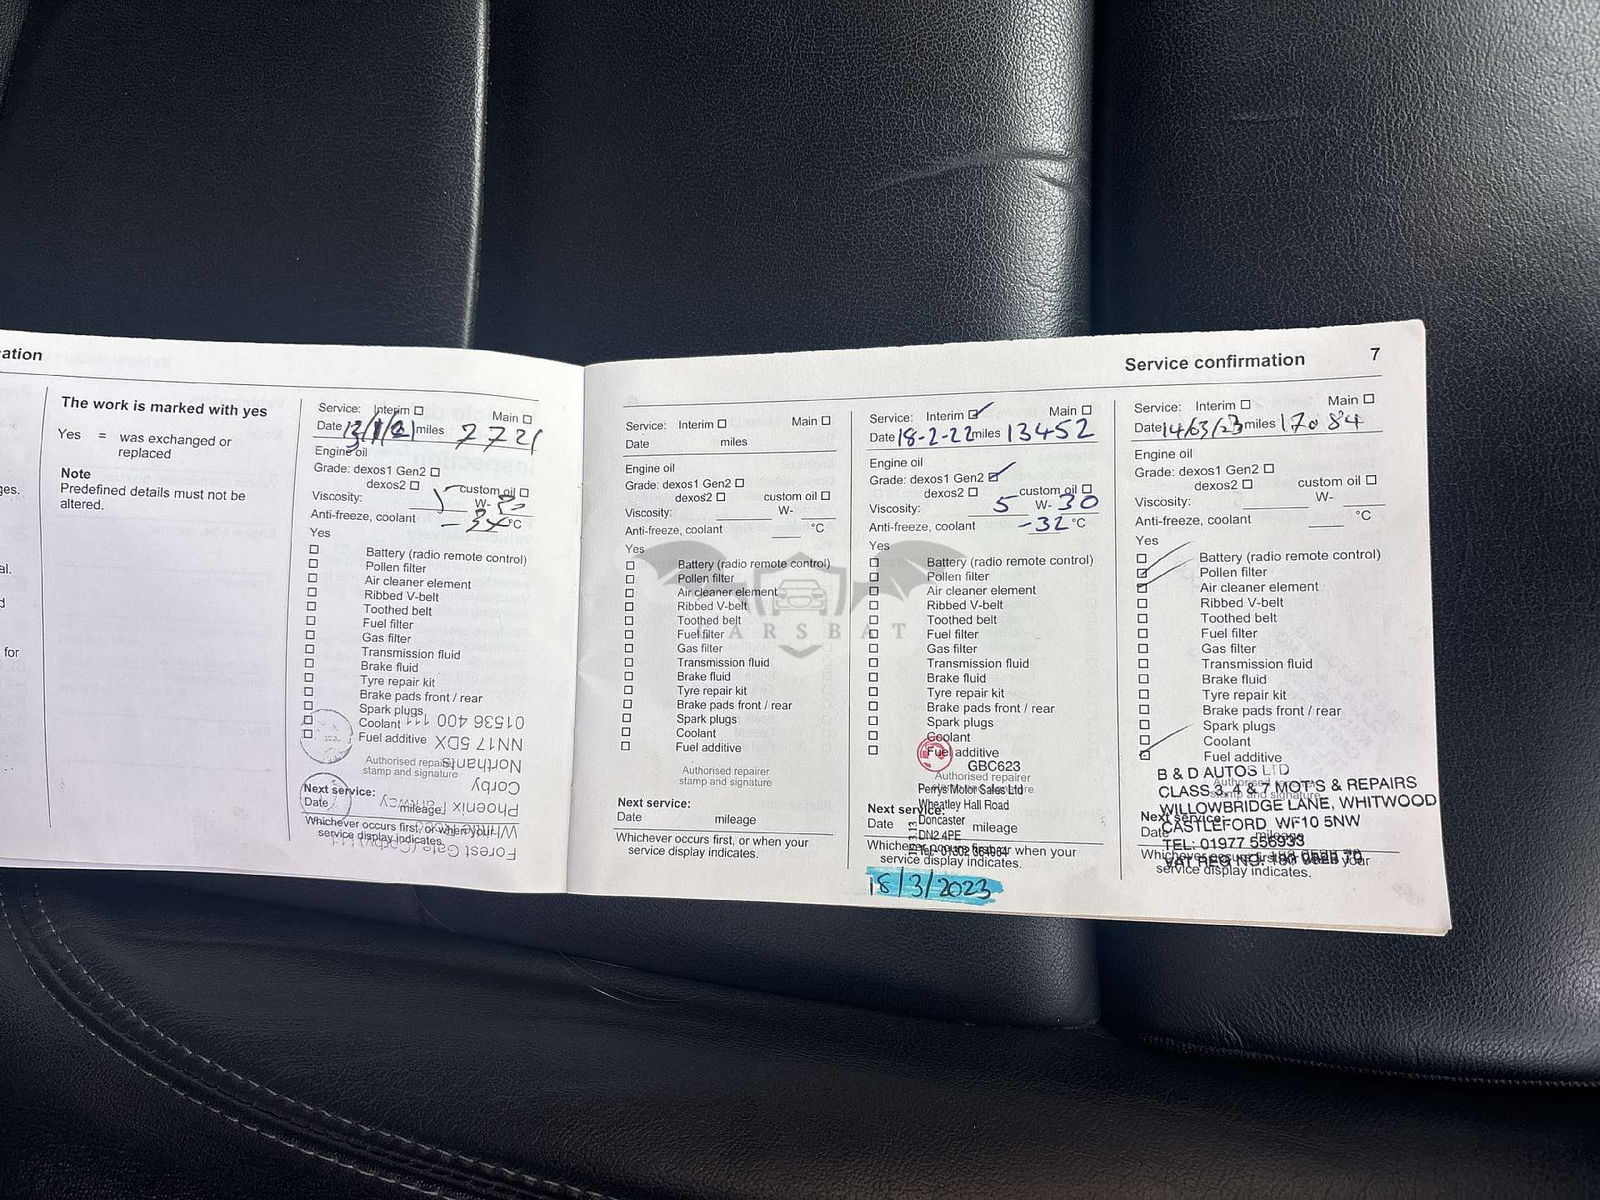 ation
ges.
al.
d
for
The work is marked with yes
Yes = was exchanged or
replaced
Note
Predefined details must not be
altered.
Service: Interim ☐ Main ☐
Date miles 7721
Engine oil
Grade: dexos1 Gen2 ☐
dexos2 ☐ custom oil ☐
Viscosity: W-
Anti-freeze, coolant °C
Yes
☐ Battery (radio remote control)
☐ Pollen filter
☐ Air cleaner element
☐ Ribbed V-belt
☐ Toothed belt
☐ Fuel filter
☐ Gas filter
☐ Transmission fluid
☐ Brake fluid
☐ Tyre repair kit
☐ Brake pads front / rear
☐ Spark plugs
☐ Coolant
☐ Fuel additive
Authorised repairer
stamp and signature
Next service:
Date mileage
Whichever occurs first, or when your
service display indicates.
Forest Gate (Corby) Ltd
Phoenix Parkway
Corby
Northants
NN17 5DX
01536 400 111
Service: Interim ☐ Main ☐
Date miles
Engine oil
Grade: dexos1 Gen2 ☐
dexos2 ☐ custom oil ☐
Viscosity: W-
Anti-freeze, coolant °C
Yes
☐ Battery (radio remote control)
☐ Pollen filter
☐ Air cleaner element
☐ Ribbed V-belt
☐ Toothed belt
☐ Fuel filter
☐ Gas filter
☐ Transmission fluid
☐ Brake fluid
☐ Tyre repair kit
☐ Brake pads front / rear
☐ Spark plugs
☐ Coolant
☐ Fuel additive
Authorised repairer
stamp and signature
Next service:
Date mileage
Whichever occurs first, or when your
service display indicates.
CARSBAT
Service confirmation 7
Service: Interim ☑ Main ☐
Date 18-2-22 miles 13452
Engine oil
Grade: dexos1 Gen2 ☑
dexos2 ☐ custom oil ☐
Viscosity: 5 W- 30
Anti-freeze, coolant -32 °C
Yes
☐ Battery (radio remote control)
☐ Pollen filter
☐ Air cleaner element
☐ Ribbed V-belt
☐ Toothed belt
☐ Fuel filter
☐ Gas filter
☐ Transmission fluid
☐ Brake fluid
☐ Tyre repair kit
☐ Brake pads front / rear
☐ Spark plugs
☐ Coolant
☐ Fuel additive
GBC623
Authorised repairer
stamp and signature
Perrys Motor Sales Ltd
Wheatley Hall Road
Doncaster
DN2 4PE
Next service:
Date mileage
Whichever occurs first, or when your
service display indicates.
18/3/2023
Service: Interim ☐ Main ☐
Date 14/03/23 miles 17084
Engine oil
Grade: dexos1 Gen2 ☐
dexos2 ☐ custom oil ☐
Viscosity: W-
Anti-freeze, coolant °C
Yes
☐ Battery (radio remote control)
☑ Pollen filter
☑ Air cleaner element
☐ Ribbed V-belt
☐ Toothed belt
☐ Fuel filter
☐ Gas filter
☐ Transmission fluid
☐ Brake fluid
☐ Tyre repair kit
☐ Brake pads front / rear
☐ Spark plugs
☐ Coolant
☑ Fuel additive
B & D AUTOS LTD
CLASS 3, 4 & 7 MOT'S & REPAIRS
WILLOWBRIDGE LANE, WHITWOOD
CASTLEFORD WF10 5NW
TEL: 01977 556933
VAT REG NO:
Authorised repairer
stamp and signature
Next service:
Date mileage
Whichever occurs first, or when your
service display indicates.